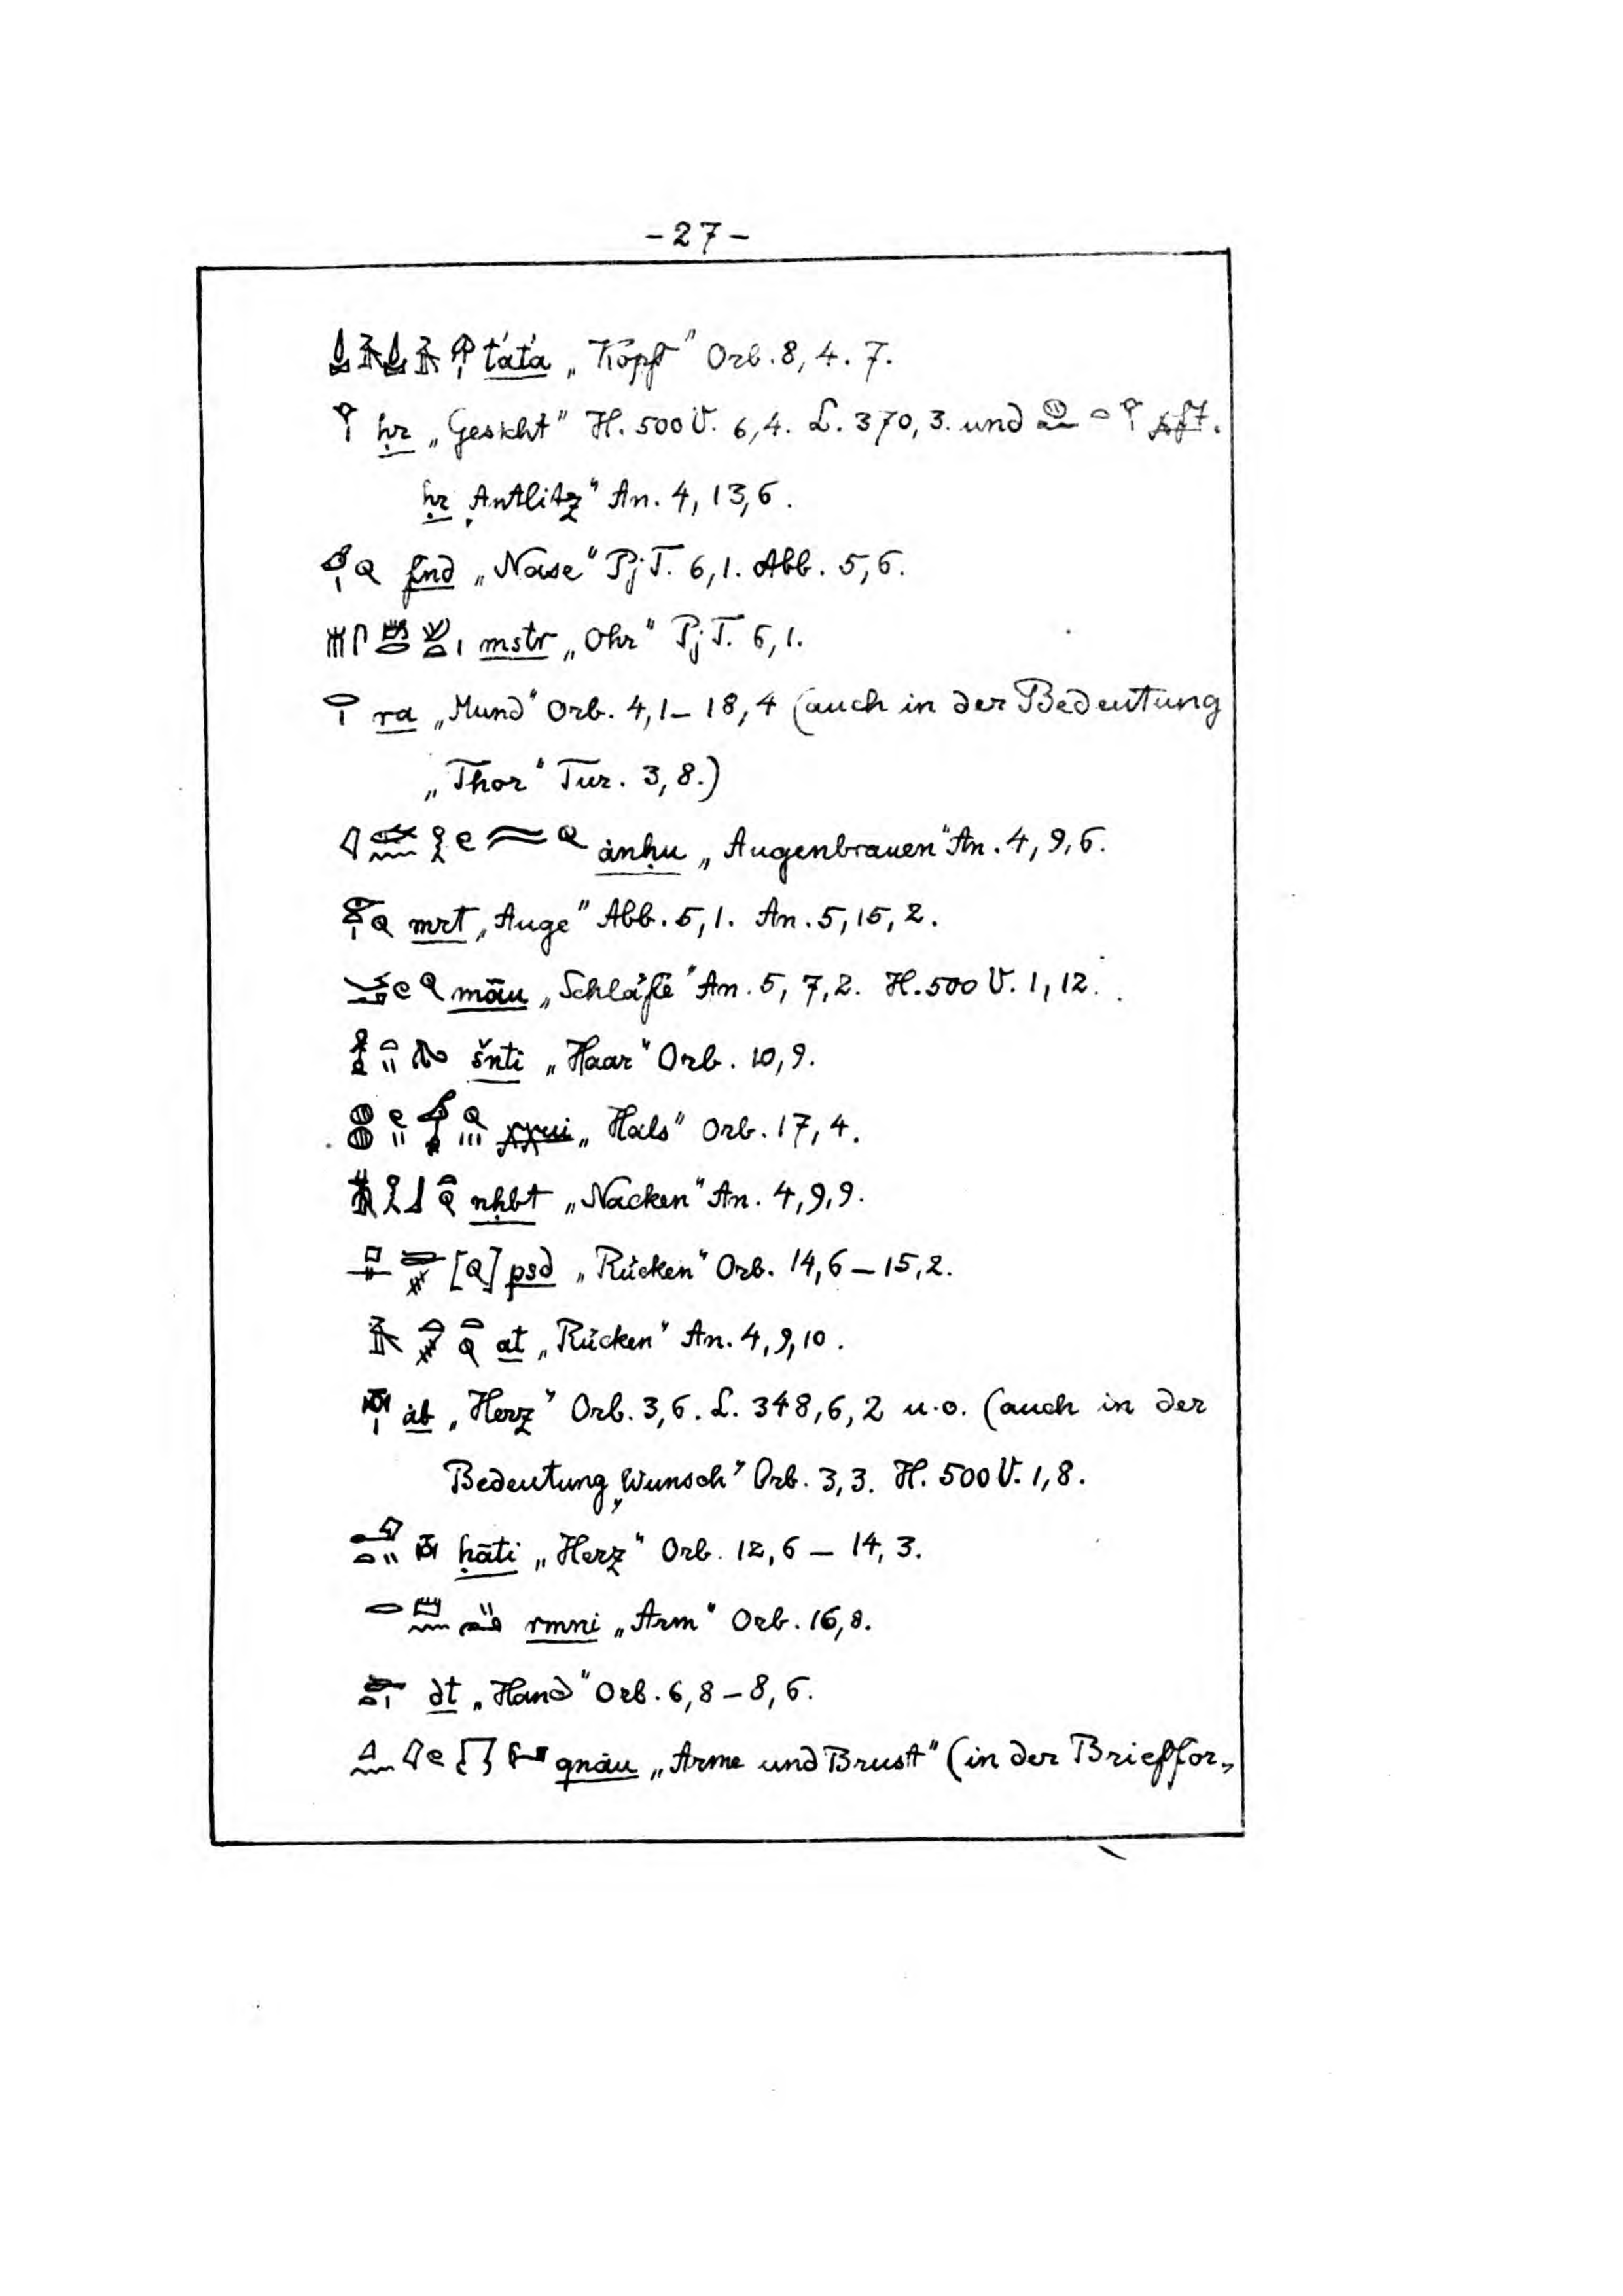 - 27 -
t́at́a „Kopf" Orb. 8, 4. 7.
ḥr „Gesicht" H. 500 V. 6, 4. L. 370, 3. und χft.
ḥr „Antlitz" An. 4, 13, 6.
fnd „Nase" Pj T. 6, 1. Abb. 5, 6.
mstr „Ohr" Pj T. 6, 1.
ra „Mund" Orb. 4, 1 – 18, 4 (auch in der Bedeutung
„Thor" Tur. 3, 8.)
ȧnḥu „Augenbrauen" An. 4, 9, 6.
mrt „Auge" Abb. 5, 1. An. 5, 15, 2.
māu „Schläfe" An. 5, 7, 2. H. 500 V. 1, 12.
šnti „Haar" Orb. 10, 9.
χχui „Hals" Orb. 17, 4.
nḥbt „Nacken" An. 4, 9, 9.
[ ] psd „Rücken" Orb. 14, 6 – 15, 2.
at „Rücken" An. 4, 9, 10.
ȧb „Herz" Orb. 3, 6. L. 348, 6, 2 u. o. (auch in der
Bedeutung „Wunsch" Orb. 3, 3. H. 500 V. 1, 8.
ḥāti „Herz" Orb. 12, 6 – 14, 3.
rmni „Arm" Orb. 16, 8.
dt „Hand" Orb. 6, 8 – 8, 6.
qnȧu „Arme und Brust" (in der Brieffor„